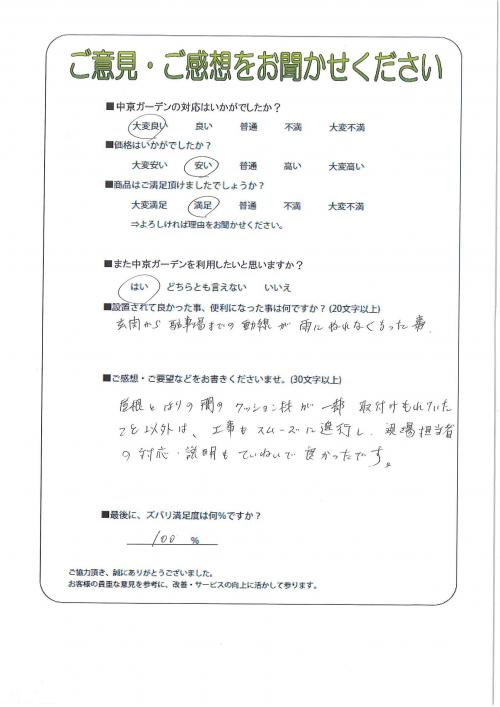 ご意見・ご感想をお聞かせください
■中京ガーデンの対応はいかがでしたか？
大変良い 良い 普通 不満 大変不満
■価格はいかがでしたか？
大変安い 安い 普通 高い 大変高い
■商品はご満足頂けましたでしょうか？
大変満足 満足 普通 不満 大変不満
⇒よろしければ理由をお聞かせください。
■また中京ガーデンを利用したいと思いますか？
はい どちらとも言えない いいえ
■設置されて良かった事、便利になった事は何ですか？(20文字以上)
玄関から駐車場までの動線が雨にぬれなくなった事.
■ご感想・ご要望などをお書きくださいませ。(30文字以上)
屋根とはりの間のクッション材が一部取付けもれていた
こと以外は、工事もスムーズに進行し、現場担当者
の対応・説明もていねいで良かったです。
■最後に、ズバリ満足度は何％ですか？
100 %
ご協力頂き、誠にありがとうございました。
お客様の貴重な意見を参考に、改善・サービスの向上に活かして参ります。